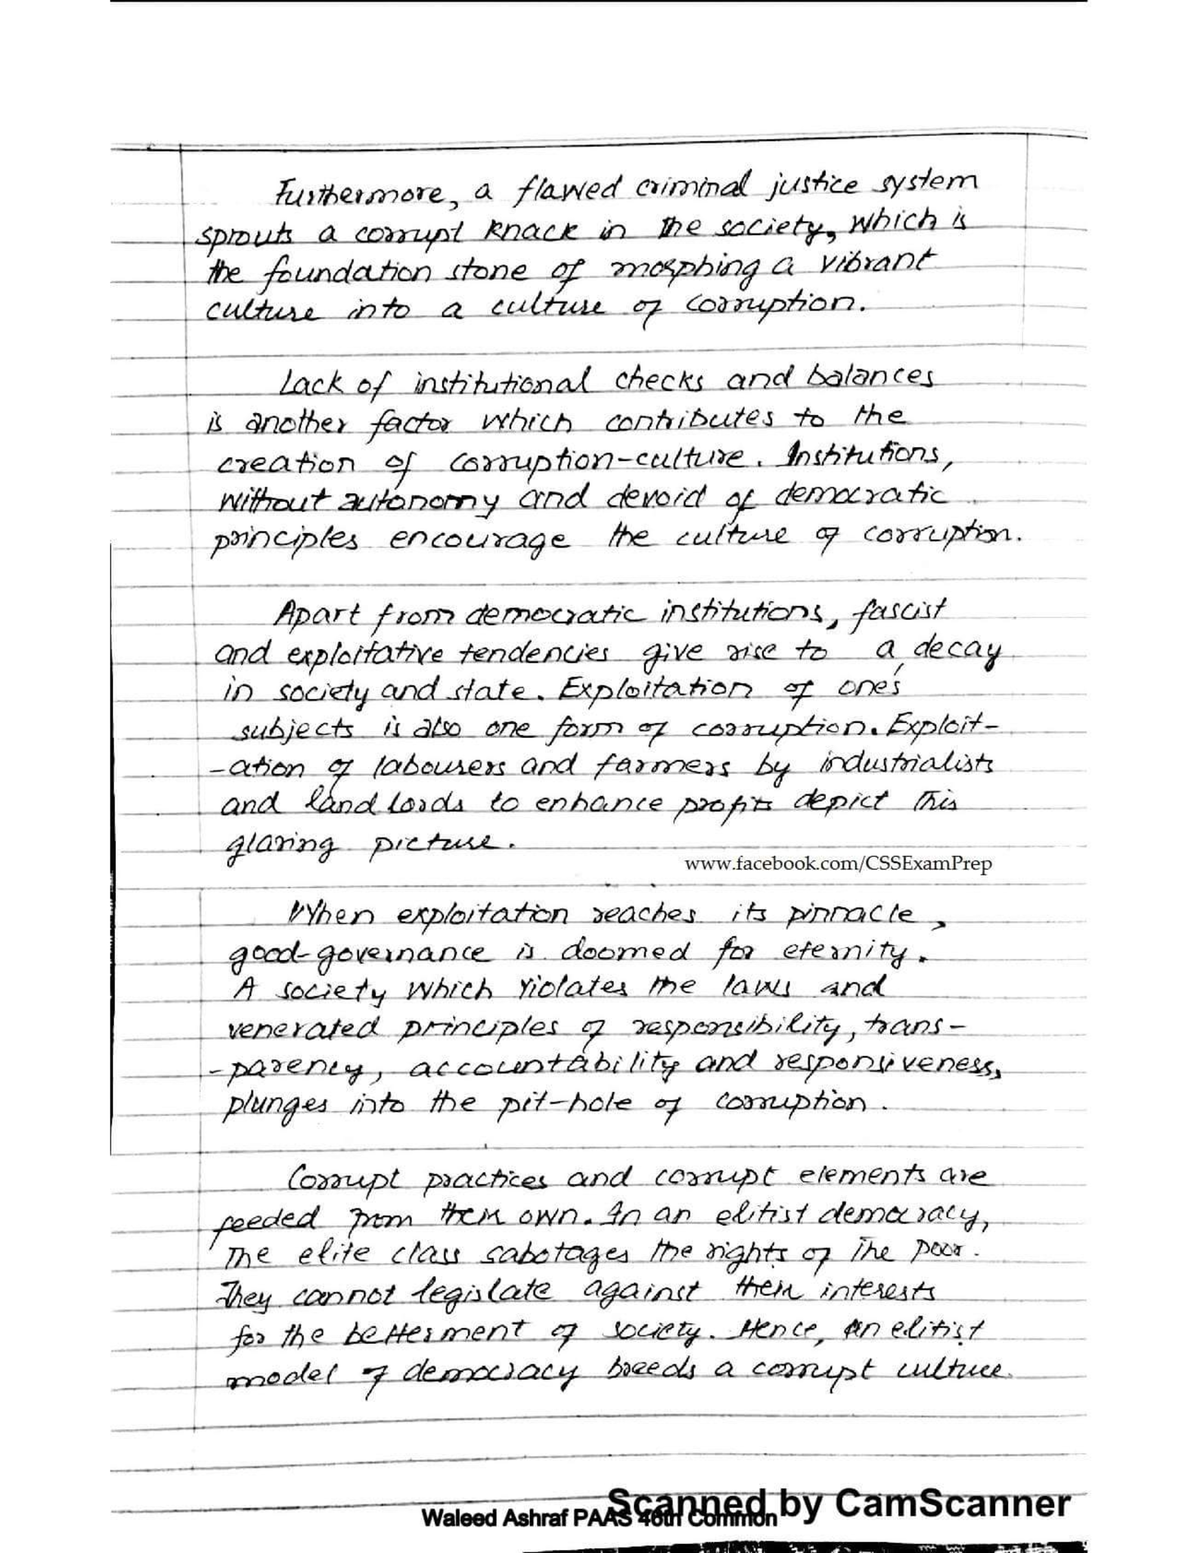 Furthermore, a flawed criminal justice system
sprouts a corrupt knack in the society, which is
the foundation stone of morphing a vibrant
culture into a culture of corruption.
Lack of institutional checks and balances
is another factor which contributes to the
creation of corruption-culture. Institutions,
without autonomy and devoid of democratic
principles encourage the culture of corruption.
Apart from democratic institutions, fascist
and exploitative tendencies give rise to a decay
in society and state. Exploitation of one's
subjects is also one form of corruption. Exploit-
-ation of labourers and farmers by industrialists
and landlords to enhance profits depict this
glaring picture.
www.facebook.com/CSSExamPrep
When exploitation reaches its pinnacle,
good-governance is doomed for eternity.
A society which violates the laws and
venerated principles of responsibility, trans-
-parency, accountability and responsiveness,
plunges into the pit-hole of corruption.
Corrupt practices and corrupt elements are
feeded from their own. In an elitist democracy,
the elite class sabotages the rights of the poor.
They cannot legislate against their interests
for the betterment of society. Hence, an elitist
model of democracy breeds a corrupt culture.
Scanned by CamScanner
Waleed Ashraf PAAS 46th Common